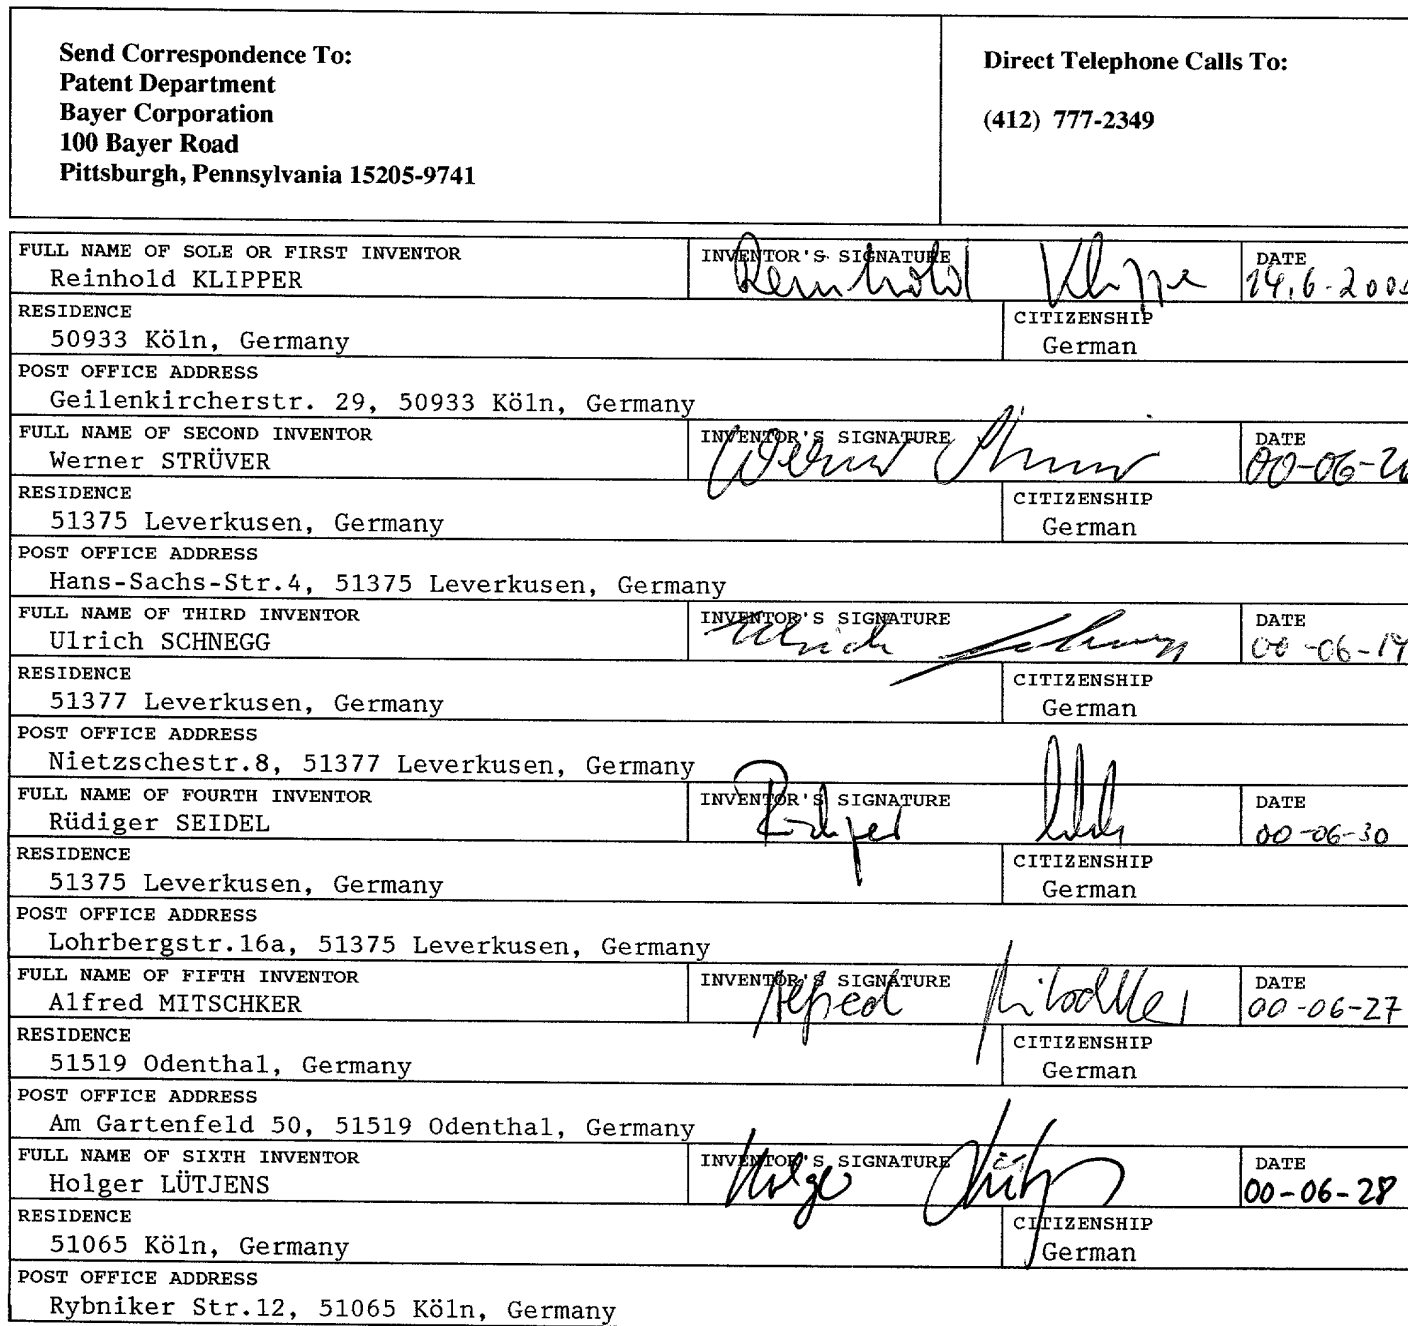 Send Correspondence To:
Patent Department
Bayer Corporation
100 Bayer Road
Pittsburgh, Pennsylvania 15205-9741
Direct Telephone Calls To:
(412) 777-2349
FULL NAME OF SOLE OR FIRST INVENTOR
Reinhold KLIPPER
INVENTOR'S SIGNATURE
Reinhold Klipper
DATE
RESIDENCE
50933 Köln, Germany
CITIZENSHIP
German
POST OFFICE ADDRESS
Geilenkircherstr. 29, 50933 Köln, Germany
FULL NAME OF SECOND INVENTOR
Werner STRÜVER
INVENTOR'S SIGNATURE
Werner Strüver
DATE
RESIDENCE
51375 Leverkusen, Germany
CITIZENSHIP
German
POST OFFICE ADDRESS
Hans-Sachs-Str.4, 51375 Leverkusen, Germany
FULL NAME OF THIRD INVENTOR
Ulrich SCHNEGG
INVENTOR'S SIGNATURE
Ulrich Schnegg
DATE
RESIDENCE
51377 Leverkusen, Germany
CITIZENSHIP
German
POST OFFICE ADDRESS
Nietzschestr.8, 51377 Leverkusen, Germany
FULL NAME OF FOURTH INVENTOR
Rüdiger SEIDEL
INVENTOR'S SIGNATURE
Rüdiger Seidel
DATE
00-06-30
RESIDENCE
51375 Leverkusen, Germany
CITIZENSHIP
German
POST OFFICE ADDRESS
Lohrbergstr.16a, 51375 Leverkusen, Germany
FULL NAME OF FIFTH INVENTOR
Alfred MITSCHKER
INVENTOR'S SIGNATURE
Alfred Mitschker
DATE
00-06-27
RESIDENCE
51519 Odenthal, Germany
CITIZENSHIP
German
POST OFFICE ADDRESS
Am Gartenfeld 50, 51519 Odenthal, Germany
FULL NAME OF SIXTH INVENTOR
Holger LÜTJENS
INVENTOR'S SIGNATURE
Holger Lütjens
DATE
00-06-28
RESIDENCE
51065 Köln, Germany
CITIZENSHIP
German
POST OFFICE ADDRESS
Rybniker Str.12, 51065 Köln, Germany